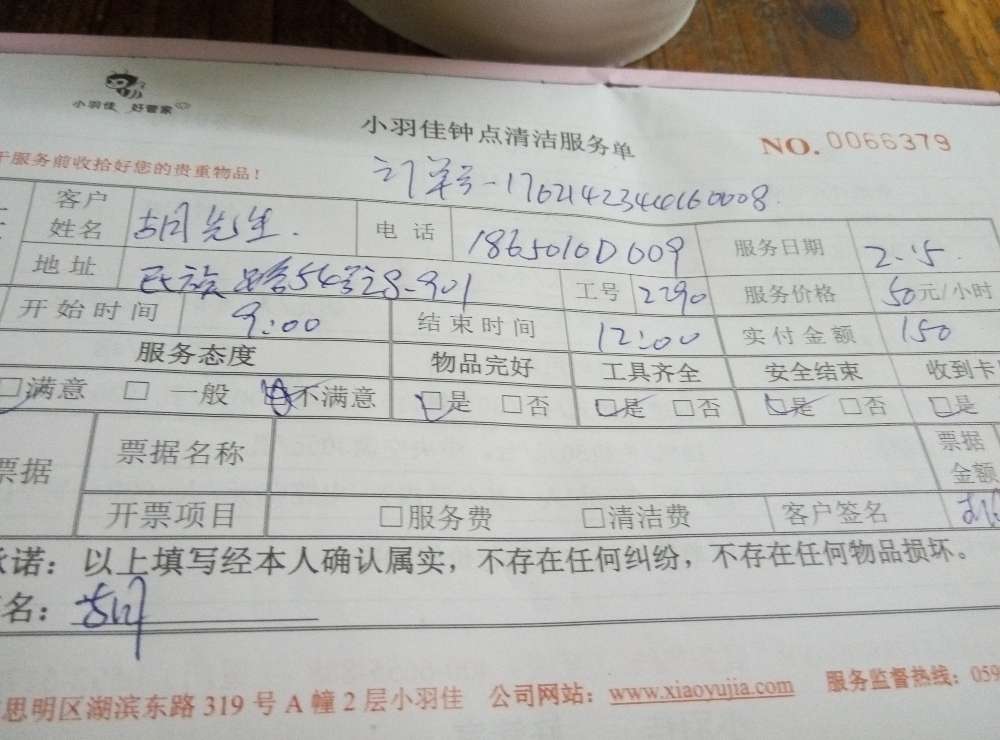 小羽佳 好管家
小羽佳钟点清洁服务单 NO. 0066379
服务前收拾好您的贵重物品！ 订单号-17621423446160008
客户姓名 胡先生. 电话 18650100009 服务日期 2.15
地址 民族路54号28-901 工号 2290 服务价格 50元/小时
开始时间 9:00 结束时间 12:00 实付金额 150
服务态度 物品完好 工具齐全 安全结束 收到卡
□满意 □一般 □不满意 □是 □否 □是 □否 □是 □否 □是
票据 票据名称 票据金额
开票项目 □服务费 □清洁费 客户签名 胡
承诺：以上填写经本人确认属实，不存在任何纠纷，不存在任何物品损坏。
名：胡
思明区湖滨东路319号A幢2层小羽佳 公司网站：www.xiaoyujia.com 服务监督热线：059